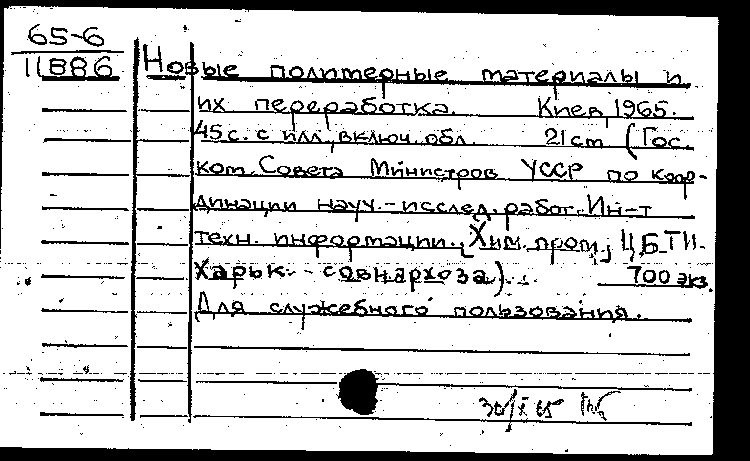 65-6
11886
Новые полимерные материалы и
их переработка. Киев, 1965.
45 с. с илл., включ. обл. 21 cm (Гос.
ком. Совета Министров УССР по коор-
динации науч.-исслед. работ. Ин-т
техн. информации. [Хим. пром.] ЦБТИ.
Харьк. совнархоза). 700 экз.
Для служебного пользования.
30/X 65